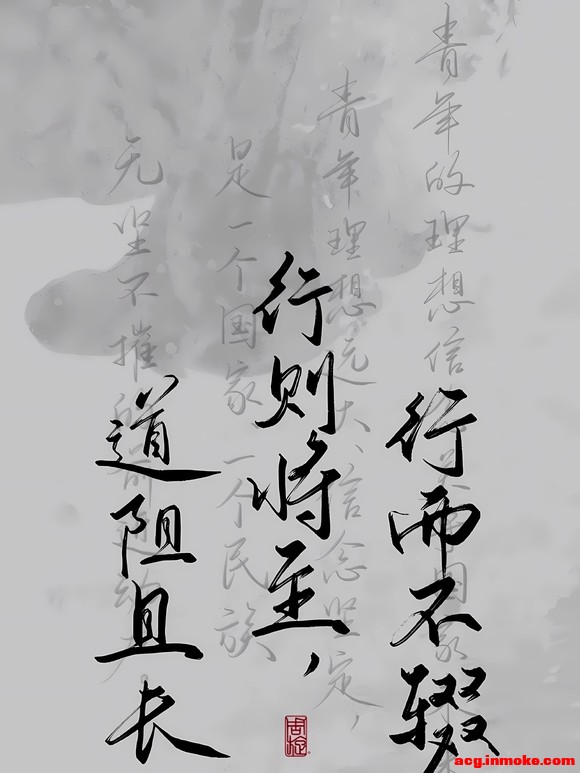 道阻且长
行则将至，
行而不辍
青年的理想信国家
青年理想远大、信念坚定，
是一个国家一个民族
无坚不摧的前进
acg.inmoke.com